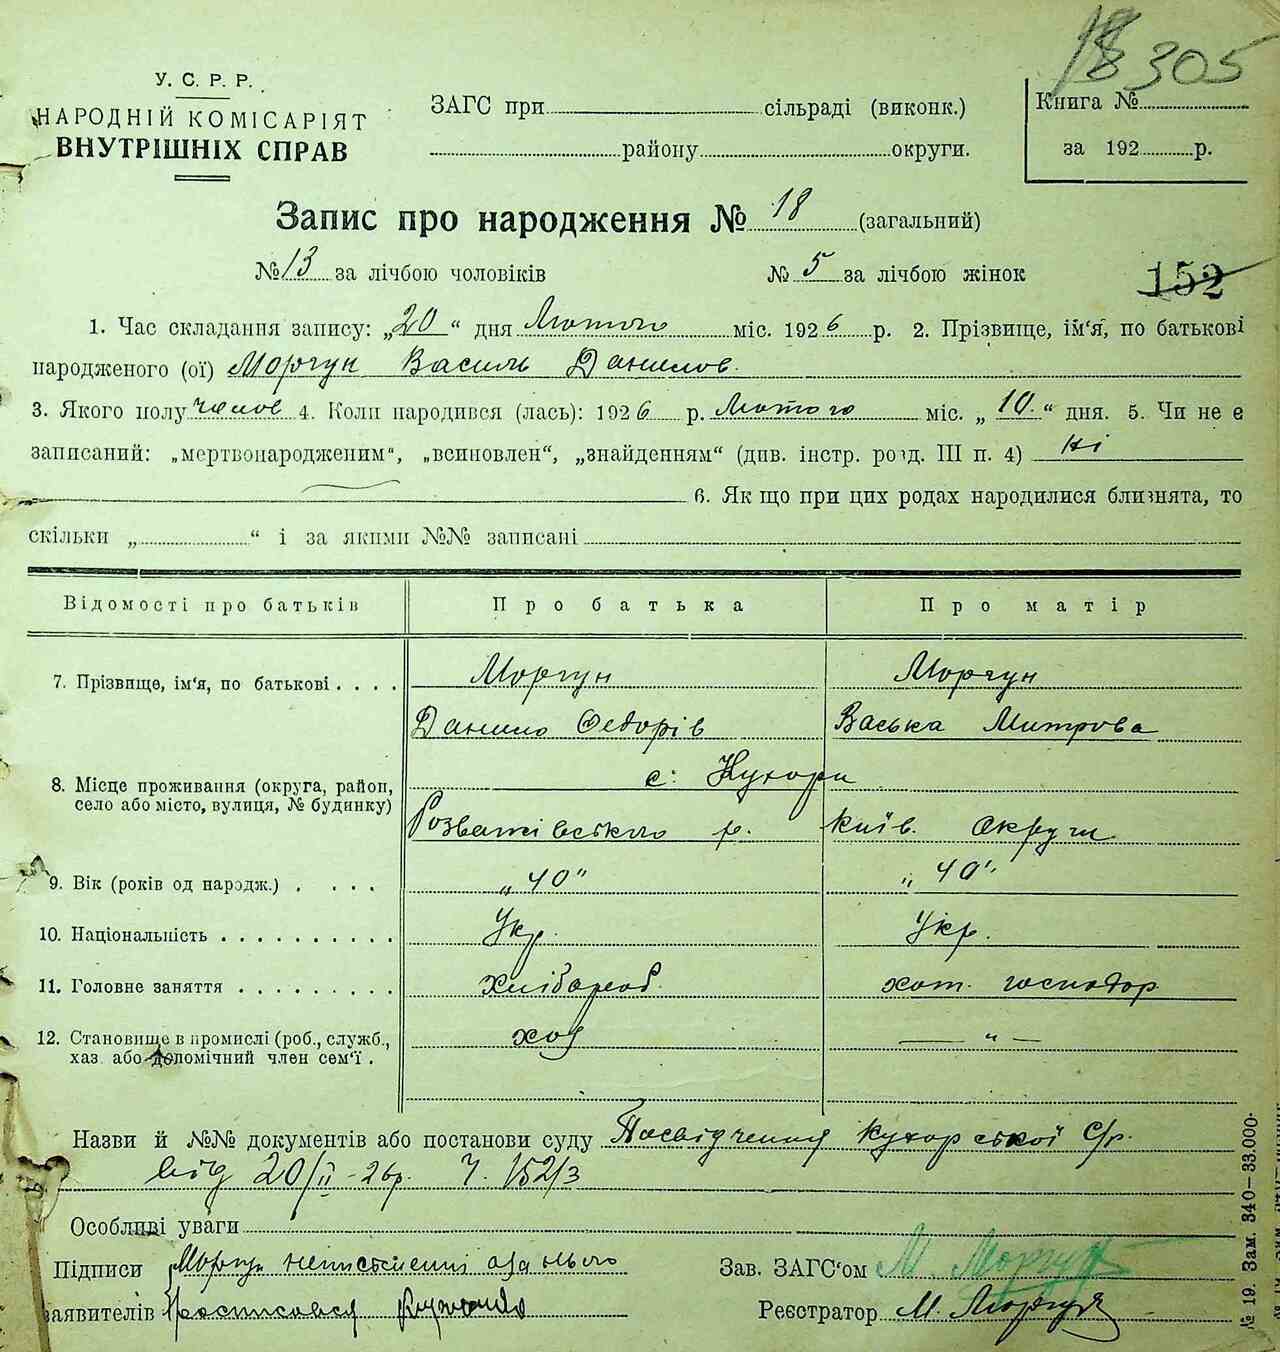 18 305
У. С. Р. Р.
НАРОДНІЙ КОМІСАРІЯТ
ВНУТРІШНІХ СПРАВ
ЗАГС при сільраді (виконк.)
району округи.
Книга №
за 192 р.
Запис про народження № 18 (загальний)
№ 13 за лічбою чоловіків № 5 за лічбою жінок
152
1. Час складання запису: „20“ дня Лютого міс. 1926 р. 2. Прізвище, ім'я, по батькові
народженого (ої) Моргун Василь Данилов.
3. Якого полу челов 4. Коли народився (лась): 1926 р. Лютого міс. „10.“ дня. 5. Чи не є
записаний: „мертвонародженим“, „всиновлен“, „знайденням“ (див. інстр. розд. III п. 4) Ні
6. Як що при цих родах народилися близнята, то
скільки „ “ і за якими №№ записані
Відомості про батьків Про батька Про матір
7. Прізвище, ім'я, по батькові . . . . Моргун Моргун
Данило Федорів Васька Митрова
8. Місце проживання (округа, район, село або місто, вулиця, № будинку) с: Кухари
Розважівського р. Київ. Округи
9. Вік (років од народж.) . . . . „40“ „40“
10. Національність . . . . . . . . . . Укр. Укр.
11. Головне заняття . . . . . . . . . хлібароб. хат. господар
12. Становище в промислі (роб., служб.,
хаз. або допомічний член сем'ї . хоз — „ —
Назви й №№ документів або постанови суду Посвідчення Кухарської С/р.
від 20/II-26р. Ч. 152/3
Особливі уваги
Підписи Моргун неписьменні а за нього
заявителів Росписався
Зав. ЗАГС'ом М. Моргун
Реєстратор М. Моргун
№ 19. Зам. 340—33.000.